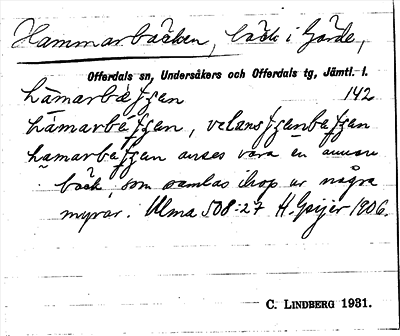 Hammarbäcken, bäck i Gärde,
Offerdals sn, Undersåkers och Offerdals tg, Jämtl. l.
142
hamarbäʃʒan anses vara en annan
bäck, som samlas ihop ur några
myrar. Ulma 508:27 H. Geijer 1906.
C. LINDBERG 1931.